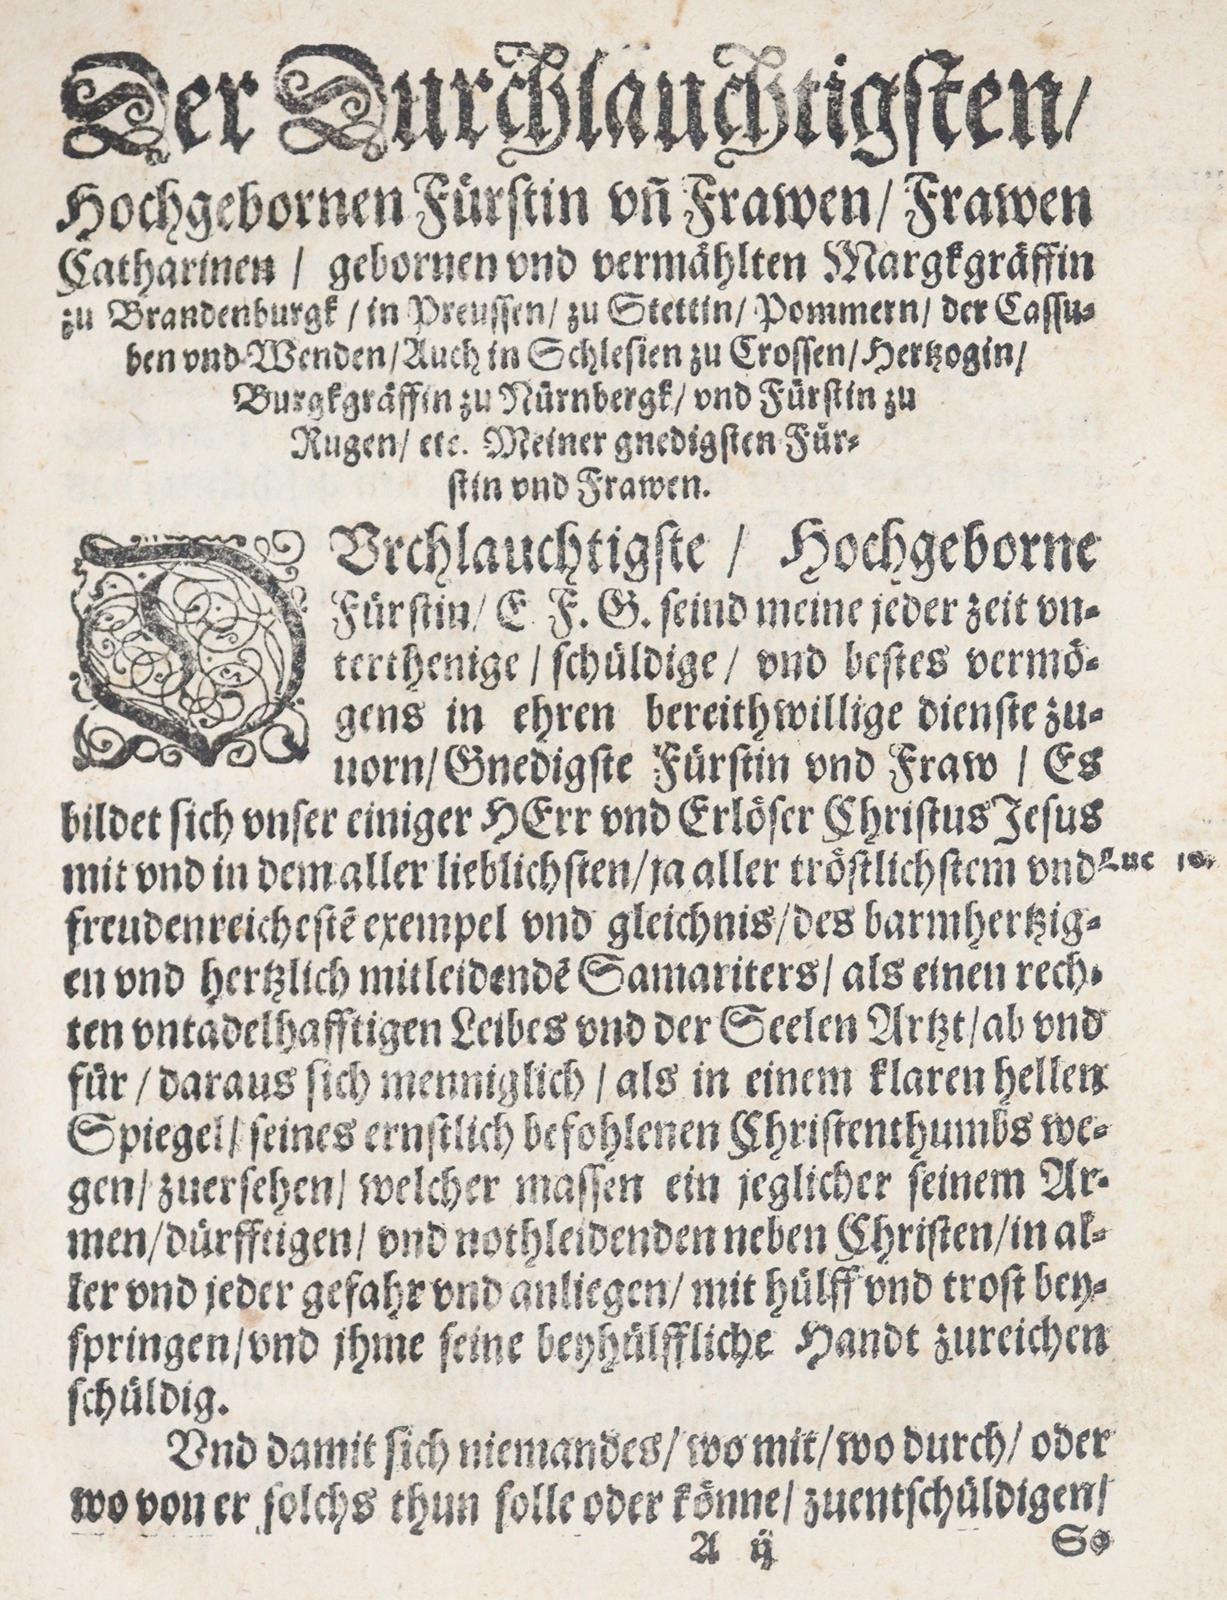 Der Durchlauchtigsten/
Hochgebornen Fürstin vñ Frawen/ Frawen
Catharinen / gebornen vnd vermählten Margkgräffin
zu Brandenburgk / in Preussen/ zu Stettin/ Pommern/ der Cassu-
ben vnd Wenden/Auch in Schlesien zu Crossen/Hertzogin/
Burgkgräffin zu Nürnbergk/ vnd Fürstin zu
Rugen/ etc. Meiner gnedigsten Für-
stin vnd Frawen.
DVrchlauchtigste / Hochgeborne
Fürstin/ E. F. G. seind meine jeder zeit vn-
terthenige / schüldige / vnd bestes vermö-
gens in ehren bereithwillige dienste zu-
uorn/Gnedigste Fürstin vnd Fraw / Es
bildet sich vnser einiger HErr vnd Erlöser Christus Jesus
mit vnd in dem aller lieblichsten/ja aller tröstlichstem vnd Luc 10.
freudenreichestē exempel vnd gleichnis/des barmhertzig-
en vnd hertzlich mitleidendē Samariters/ als einen rech-
ten vntadelhafftigen Leibes vnd der Seelen Artzt/ab vnd
für / daraus sich menniglich / als in einem klaren hellen
Spiegel/ seines ernstlich befohlenen Christenthumbs we-
gen/ zuersehen/ welcher massen ein jeglicher seinem Ar-
men/dürfftigen/ vnd nothleidenden neben Christen/in al-
ler vnd jeder gefahr vnd anliegen/ mit hülff vnd trost bey-
springen/vnd jhme seine beyhülffliche Handt zureichen
schüldig.
Vnd damit sich niemandes/ wo mit/ wo durch/ oder
wo von er solchs thun solle oder könne/ zuentschüldigen/
A ij So